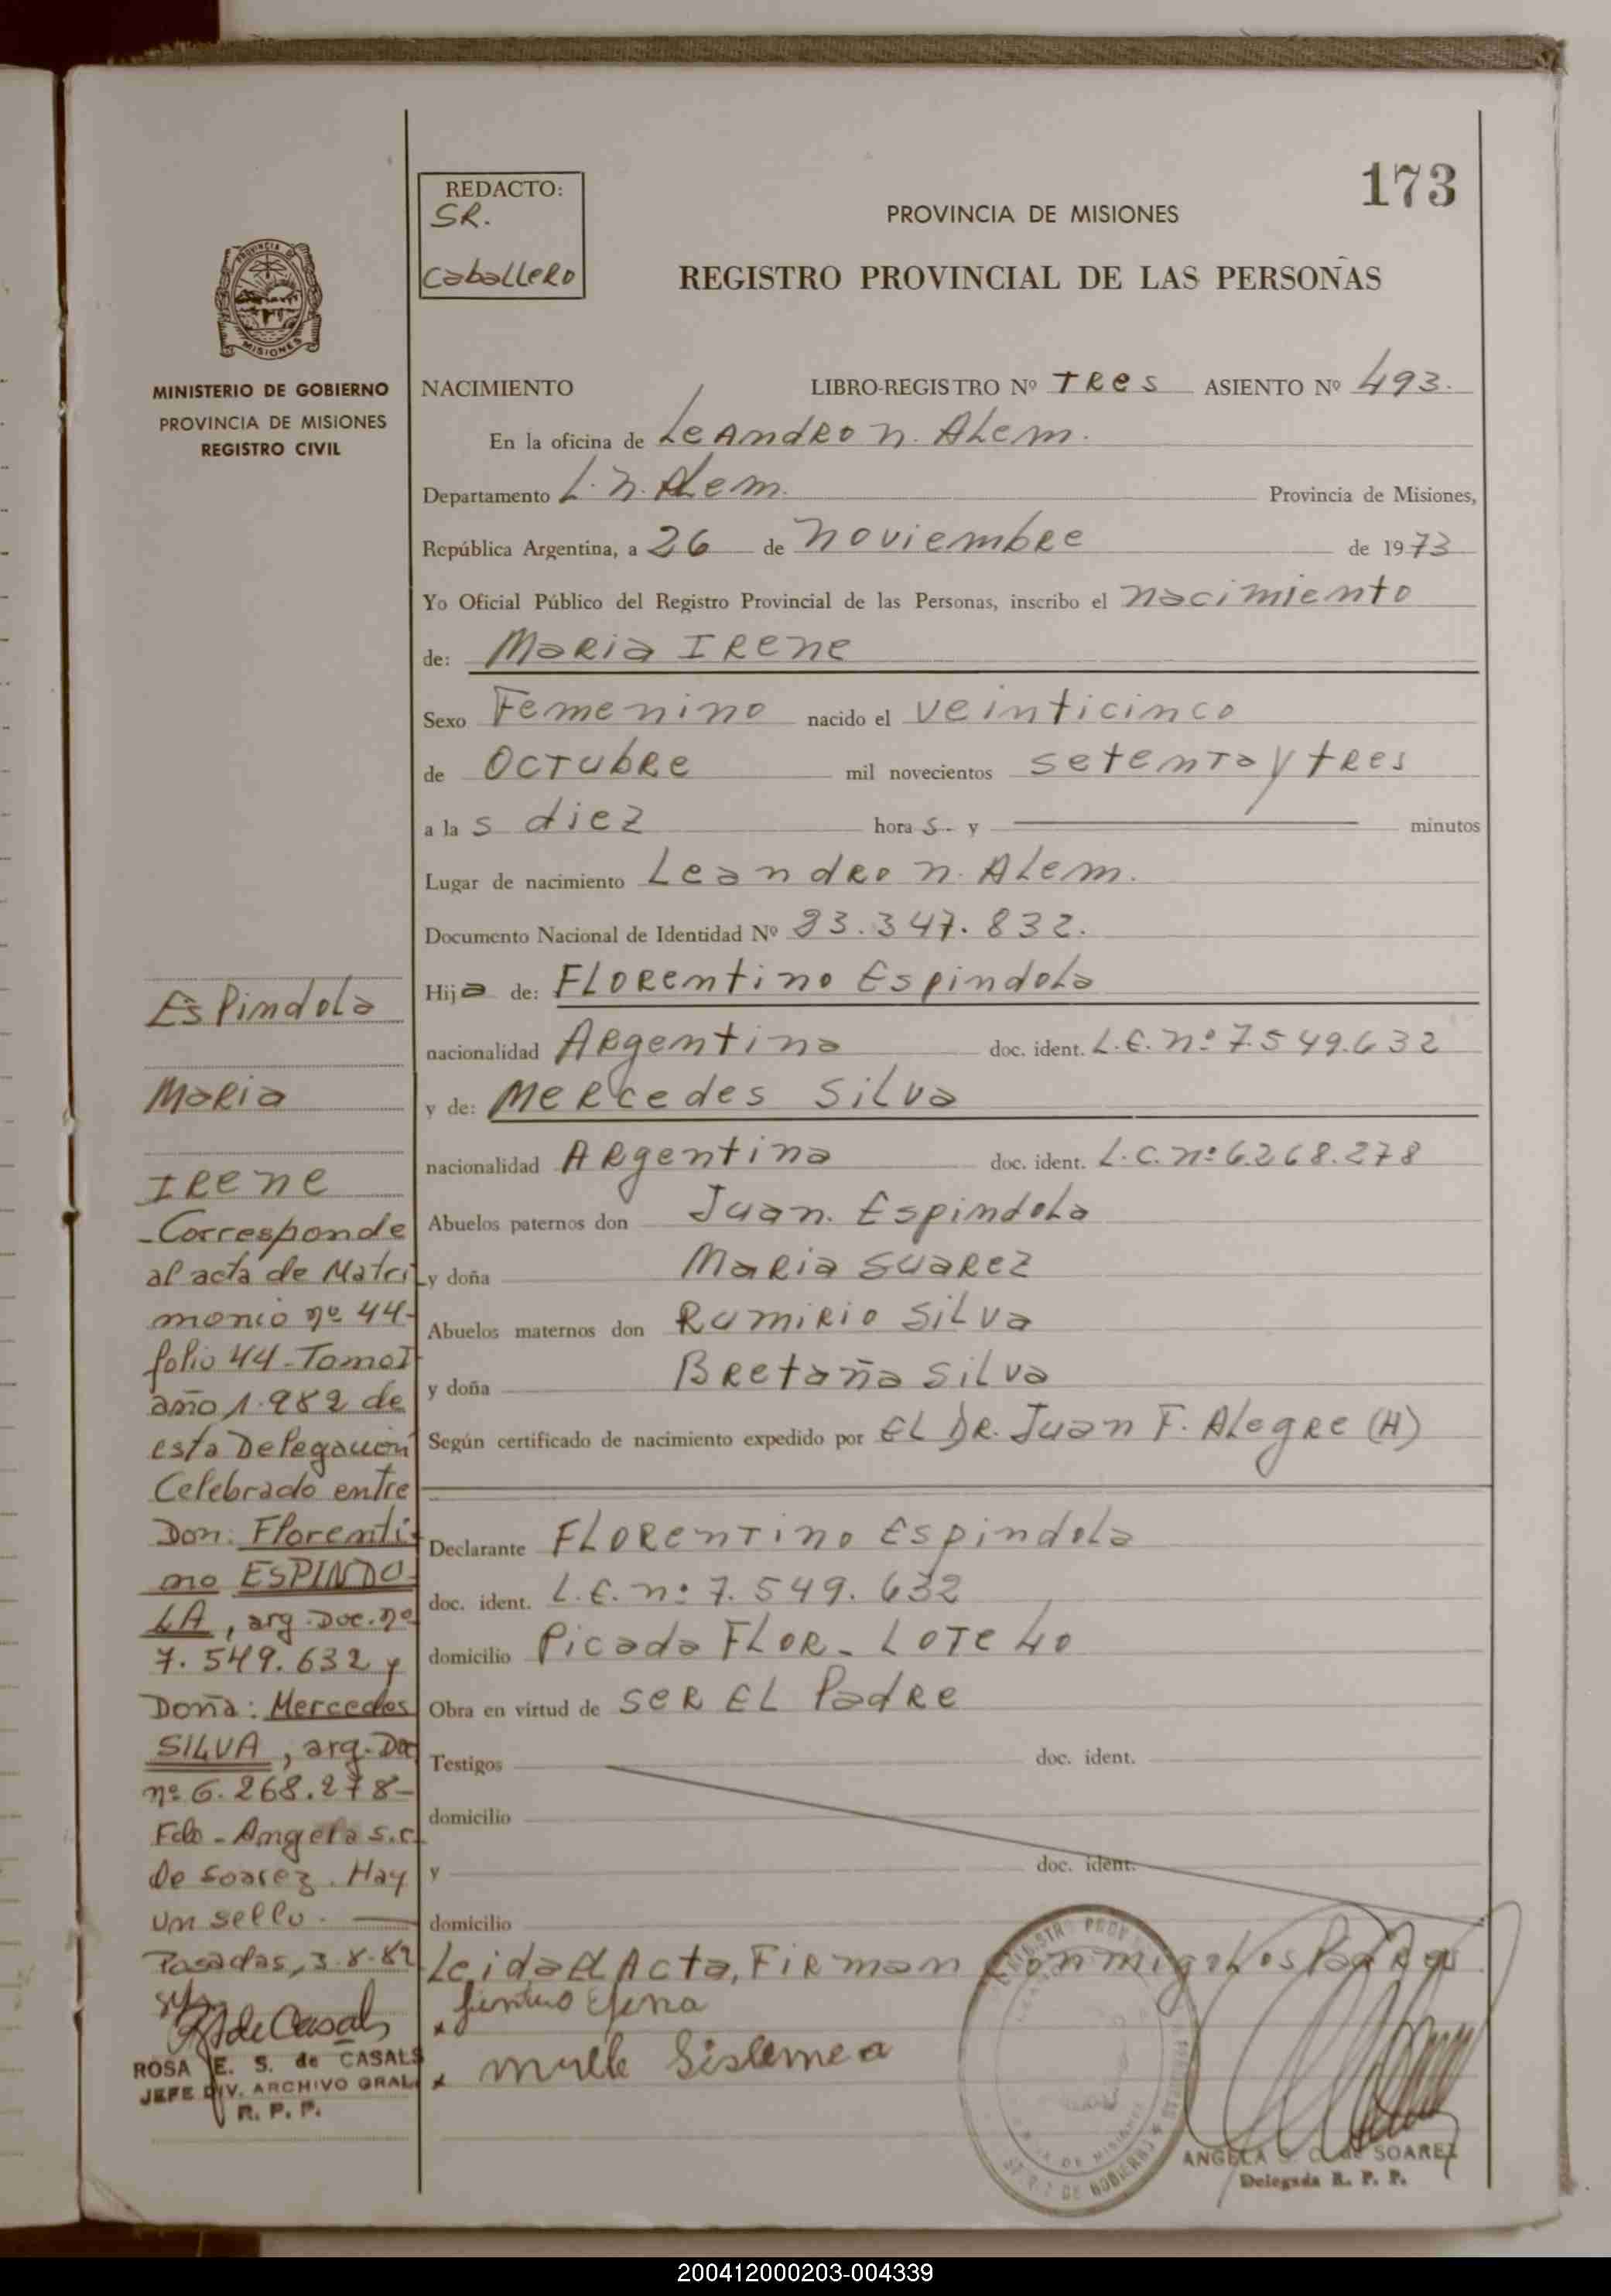 173
REDACTO:
SR.
Caballero
PROVINCIA DE MISIONES
REGISTRO PROVINCIAL DE LAS PERSONAS
PROVINCIA DE
MISIONES
MINISTERIO DE GOBIERNO
PROVINCIA DE MISIONES
REGISTRO CIVIL
NACIMIENTO LIBRO-REGISTRO Nº TRes ASIENTO Nº 493.
En la oficina de LeAndRo n. ALem.
Departamento L. n. ALem. Provincia de Misiones,
República Argentina, a 26 de noviembRe de 1973
Yo Oficial Público del Registro Provincial de las Personas, inscribo el nacimiento
de: MaRia IRene
Sexo Femenino nacido el veinticinco
de OcTubRe mil novecientos setenTa y tRes
a la s diez hora s- y minutos
Lugar de nacimiento Leandro n. ALem.
Documento Nacional de Identidad Nº 23.347.832.
Hija de: FLoRentino Espindola
nacionalidad ARgentina doc. ident. L.E. nº 7.549.632
y de: MeRcedes SiLva
nacionalidad ARgentina doc. ident. L.C. nº 6.268.278
Abuelos paternos don Juan. Espindola
y doña MaRia SuaRez
Abuelos maternos don RamiRio SiLva
y doña BRetaña SiLva
Según certificado de nacimiento expedido por EL DR. Juan F. ALegRe (H)
Declarante FLoRenTino Espindola
doc. ident. L.E. nº 7.549.632
domicilio Picada FLoR - LoTe 40
Obra en virtud de seR EL PadRe
Testigos doc. ident.
domicilio
y doc. ident.
domicilio
Leida el Acta, FiRman conmigo los PadRes
ANGELA S. C. de SOAREZ
Delegada R. P. P.
Espindola
MaRia
IRene
- Corresponde
al acta de Matri
monio nº 44-
folio 44 - Tomo I
año 1.982 de
esta Delegación
Celebrado entre
Don: Florenti
no ESPINDO-
LA, arg. Doc. nº
7.549.632 y
Doña: Mercedes
SILVA, arg. Doc
nº 6.268.278-
Fdo - Angela S.C.
de Soarez. Hay
un sello.
Posadas, 3-8-82
ROSA E. S. de CASALS
JEFE DIV. ARCHIVO GRAL.
R. P. P.
200412000203-004339